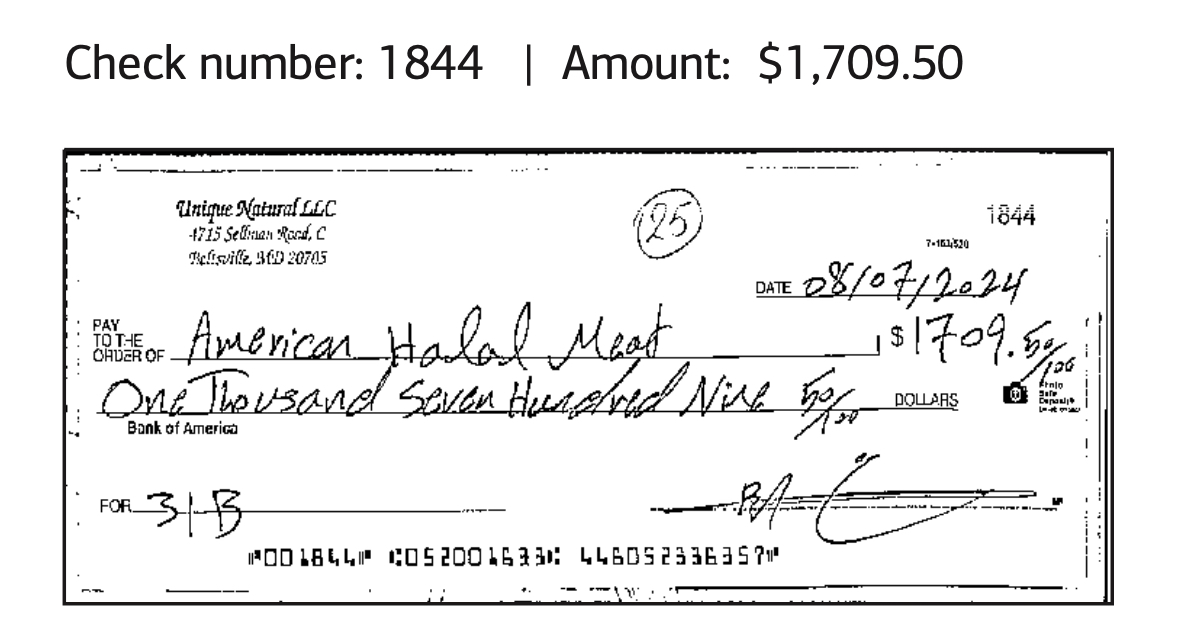 Check number: 1844 | Amount: $1,709.50
Unique Natural LLC
4715 Sellman Road, C
Beltsville, MD 20705
125
1844
7-163/520
DATE 08/07/2024
PAY TO THE ORDER OF American Halal Meat $1709.50/100
One Thousand Seven Hundred Nine 50/100 DOLLARS
Photo
Safe
Deposit®
Bank of America
FOR 31B
⑈001844⑈ ⑆052001633⑆ 446052336357⑈